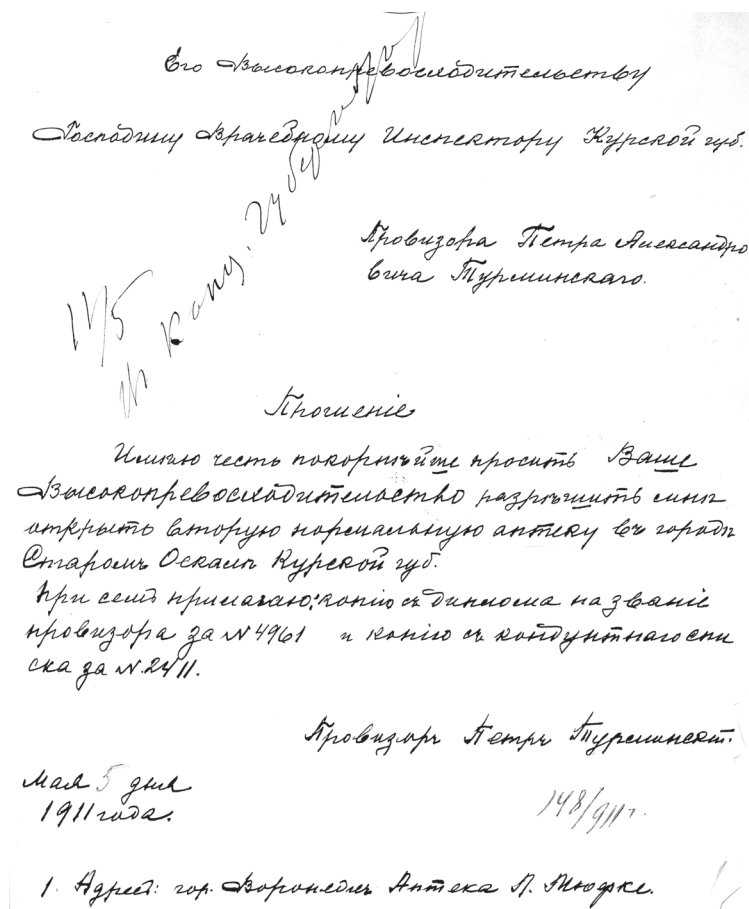 Его Высокопревосходительству
Господину Врачебному Инспектору Курской губ.
Провизора Петра Александро
вича Турминскаго.
11/5
Прошеніе
Имѣю честь покорнѣйше просить Ваше
Высокопревосходительство разрѣшить мнѣ
открыть вторую нормальную аптеку въ городѣ
Старомъ Осколѣ Курской губ.
При семъ прилагаю: копію съ диплома на званіе
провизора за № 4961 и копію съ кондуитнаго спи
ска за № 2411.
Провизоръ Петръ Турминскій.
Мая 5 дня
1911 года.
148/911 г.
1. Адрес: гор. Воронежъ Аптека Л. Мюфке.